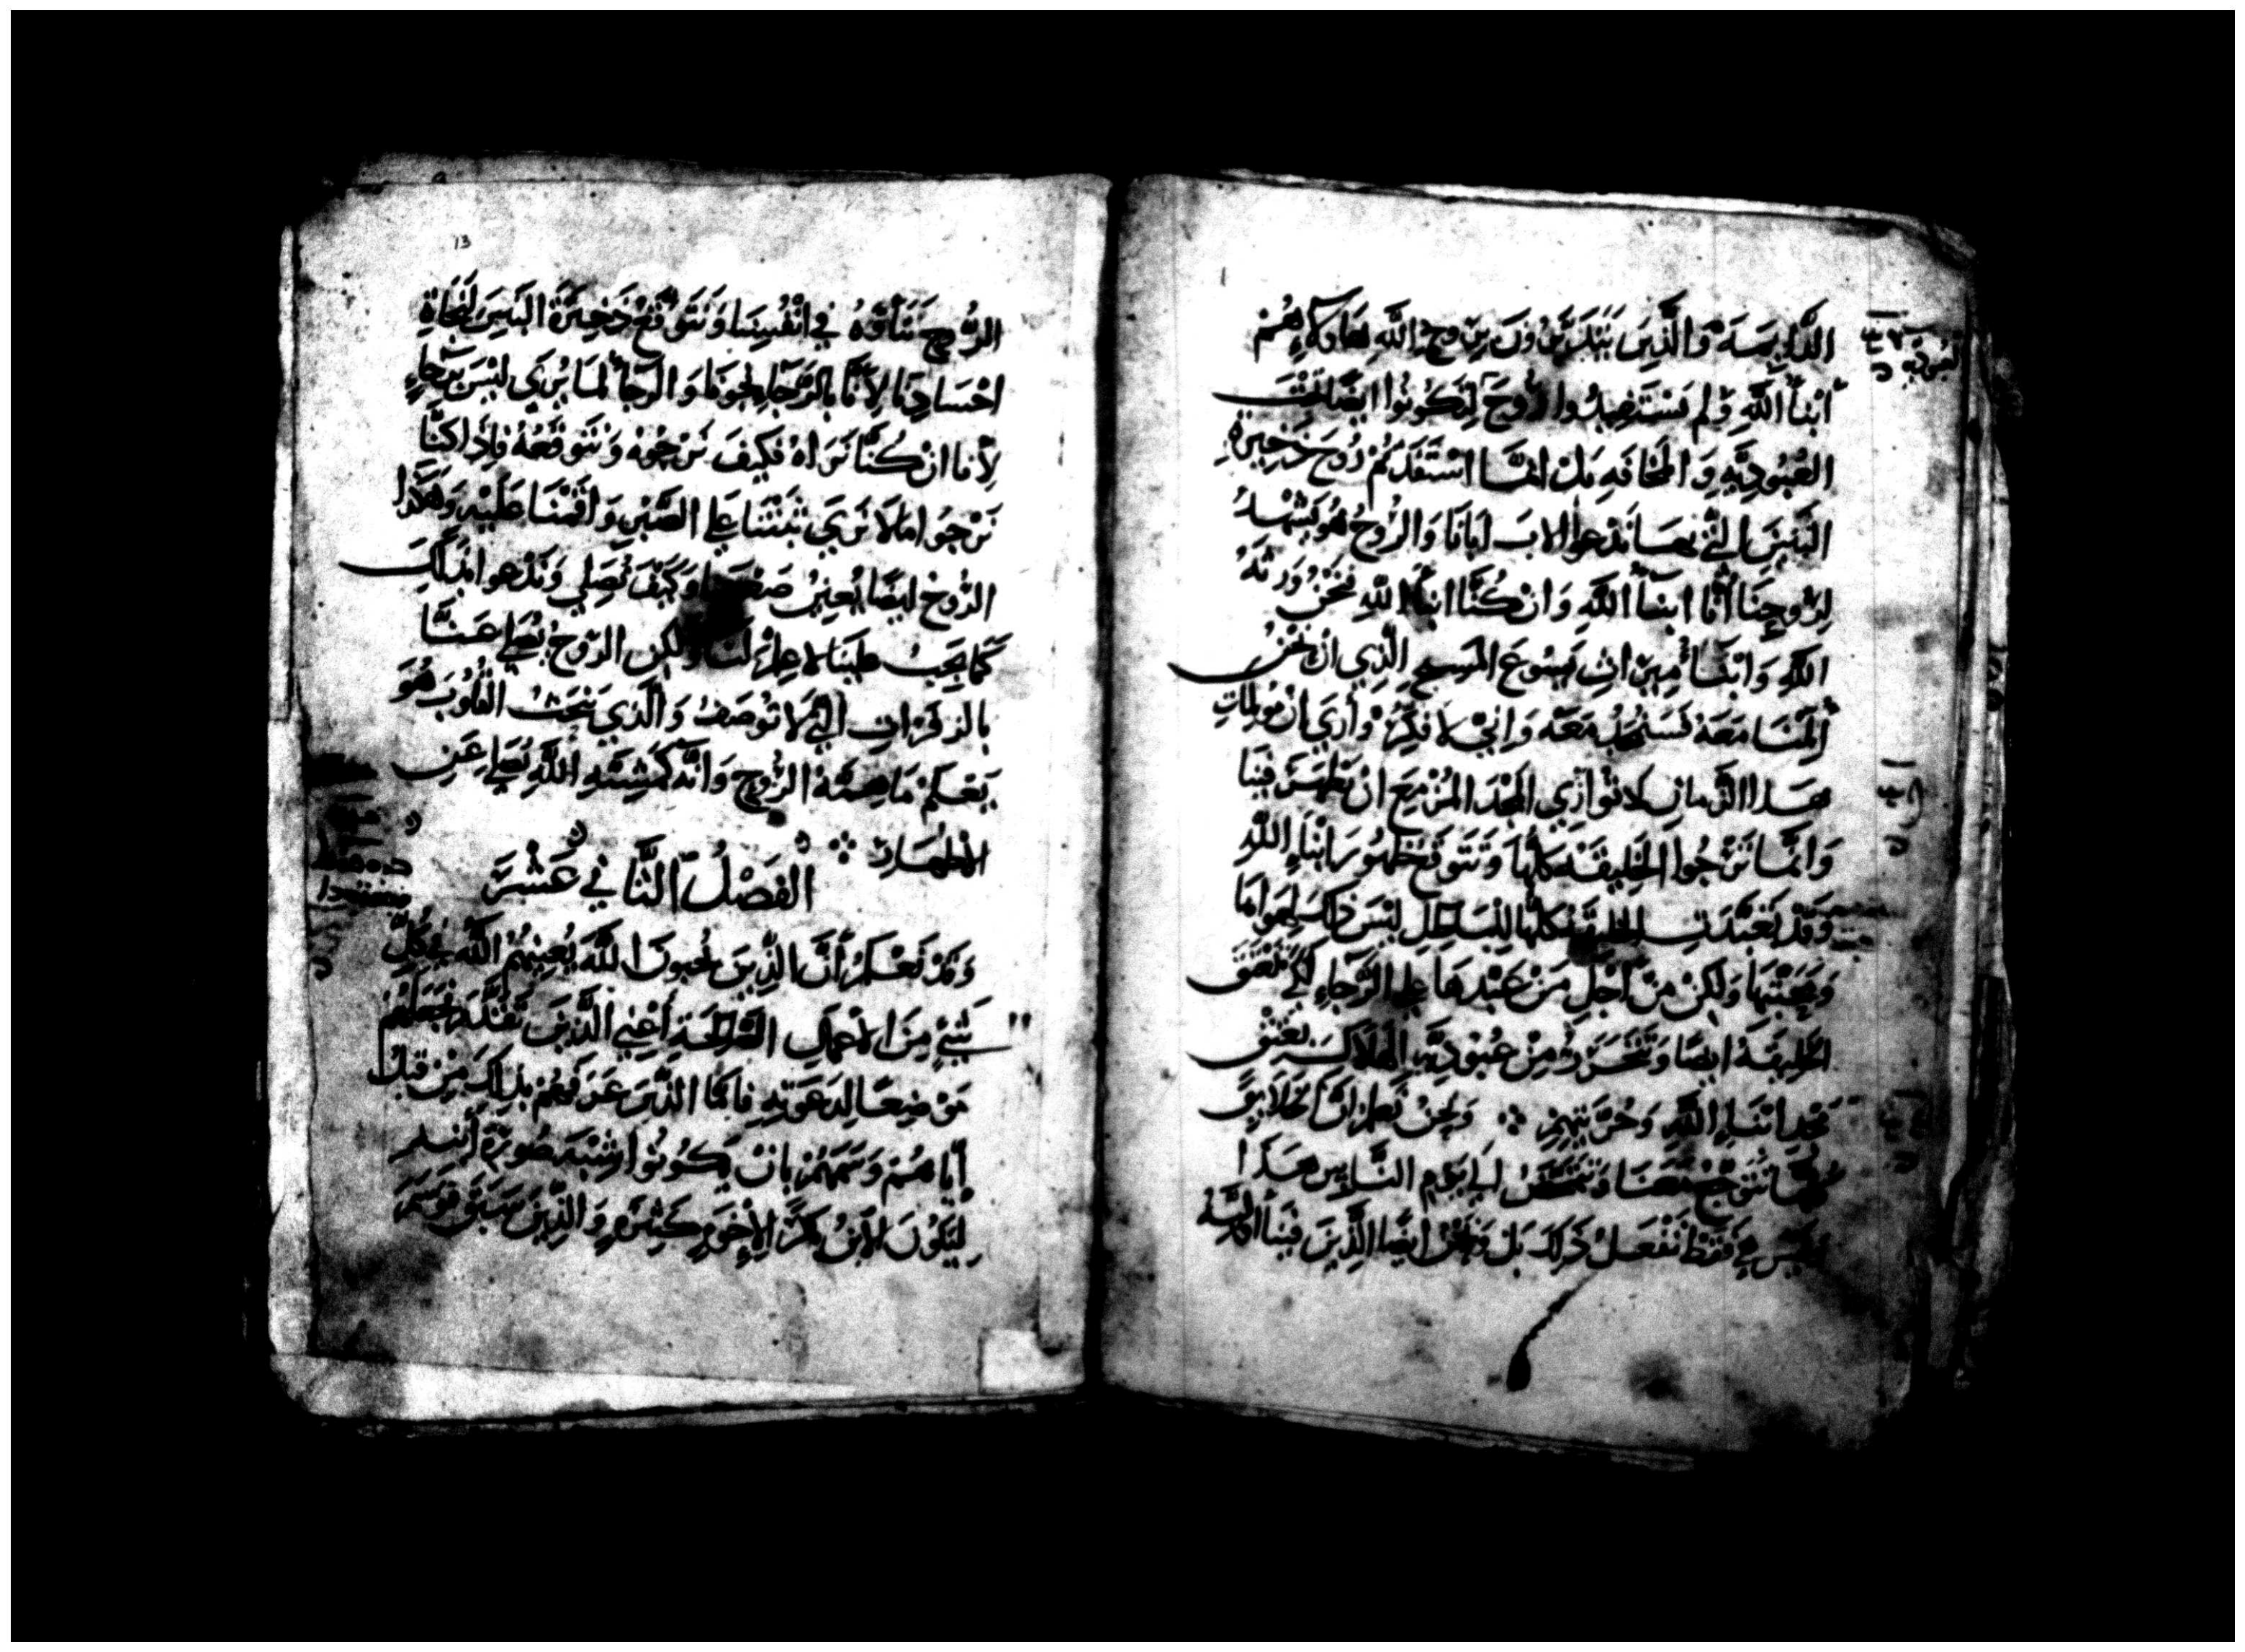 الدَّايِسَة وَالَّذِينَ يَتَدَبَّرُونَ بِرُوحِ اللَّهِ هَاوُلَاءِ هُمْ
أَبْنَاُ اللَّهِ وَلَم تَسْتَفِيدُوا رُوحَ لِتَكُونُوا ايضًا تَحْتَ
العُبُودِيَّةِ وَالمَخَافَةِ بَلْ انمَّا اسْتَفَدتُمْ رُوحَ ذَخِيرَةِ
البَنِينَ الَّتِي بهَا نَدْعوا الابَ ابَانَا وَالرُّوحُ هُوَ يَشْهَدُ
لِرُوحِنَا أنَّا ابنَاُ اللَّهِ وَانْ كُنَّا ابنَاُ اللَّهِ فَنَحْنُ وَرَثَةُ
اللَّهِ وَابْنَاُ مِيرَاثِ يَسُوعَ المَسِيحِ الَّذِي ان نَحْنُ
أَلَمْنَا مَعَهُ فَسَنُمَجَّدُ مَعَهُ وَانِّي لافَكِّرُ وَأَرَي انَّ مُولمَاتِ
هَذا الزَّمانِ لا تُوازَي المَجْدَ المُزْمِعَ انْ يَظهَرَ فِينَا
وَانمَّا نَرْجُوا الخَلِيقَهُ كلُّهَا وَتَتَوَقَّعُ ظهُورَ ابْنَاءِ اللَّهِ
وَقَدْ تَعَبَّدَتِ الخليقَة كلُّهَا للبَاطِلِ ليْسَ ذلكَ لِهَواهَا
وَمَحَبَّتِهَا وَلَكِنْ مِنْ أَجْلِ مَنْ عَبَّدَهَا عَلي الرَّجَاءِ لكَي تعْتَقَ
الخَلِيقَهُ ايضًا وَتَتَحَرَّرَ مِنْ عُبُودِيَّةِ الهَلَاكِ بعِتْقِ
مَجْدِ ابْنَاءِ اللَّهِ وَحُرِّيَّتِهِمْ ∴ وَنحْنُ نَعلمُ انَّ الخَلَايِقَ
كُلَّهَا تَتَوَجَّعُ مَعَنَا وَتَتَمَخَّضُ الَي يَوْمِ النَّاسِ هَذَا
فَقَطْ تَفْعَلُ ذَلِكَ بَلْ وَنَحْنُ ايضًا الَّذِينَ فِينَا
13
الرُّوحِ نَتَأَوَّهُ في انْفُسِنَا وَنَتَوَقَّعُ ذَخِيرَةَ البَنِينَ لِنجَاةِ
اجْسَادِنَا لِأَنَّا بِالرَّجَاءِ نجَوْنَا وَالرَّجَا لمَا يُرَي ليْسَ بِرَجَاءٍ
لِأَنا انْ كُنَّا نَرَاهُ فَكيفَ نَرْجُوهُ وَنَتَوَقَّعُهُ فَإِذَا كنَّا
نَرْجُوا مَا لَا نَرَي ثبَتْنَا عَلي الصَّبْرِ وَاقَمْنَا عَلَيْهِ وَهَكَذا
الرُّوحُ ايضًا يُعِينُ ضَعْفَنَا وَكَيْفَ نُصَلِي وَنَدْعوا بذَلكَ
كَمَا يَجَبُ عَلينَا لا عِلمَ لنَا وَلكِن الرُّوحُ يُصَلي عَنَّا
بِالزفَرَاتِ الَّتِي لَا تُوصَفُ وَالَّذِي يَبْحَثُ القُلُوبَ هُوَ
يَعْلَمُ مَا هِمَّةُ الرُّوحِ وَانَّهُ كَمَشِيَّةِ اللَّهِ يُصَلي عَنِ
الاطهَارِ ∴
الفَصْلُ الثَّانِي عَشَرَ
وَقَدْ نَعْلَمُ أَنَّ الَّذِينَ يُحِبُّونَ اللَّهَ يُعِينُهُمُ اللَّهُ بِكُلِّ
شَيْءٍ مِنَ الاعْمَالِ الصَّالِحَةِ أَعْنِي الَّذِينَ تَقَدَّمَ فَجَعَلَهُمْ
مَوْضِعًا لِدَعوَتِهِ فَامَّا الَّذِينَ عَرَفَهُمْ بِذَلكَ مِنْ قبْلُ
أَيَّاهُمْ وَسَمَهُمْ بِانْ يَكونُوا شِبْهَ صُورَةِ أبنهِ
لِيَكونَ الابْنُ بكرًا لِلإِخْوَةٍ كَثِيرَةٍ وَالَّذِينَ سَبَقَ فَوَسَمَ